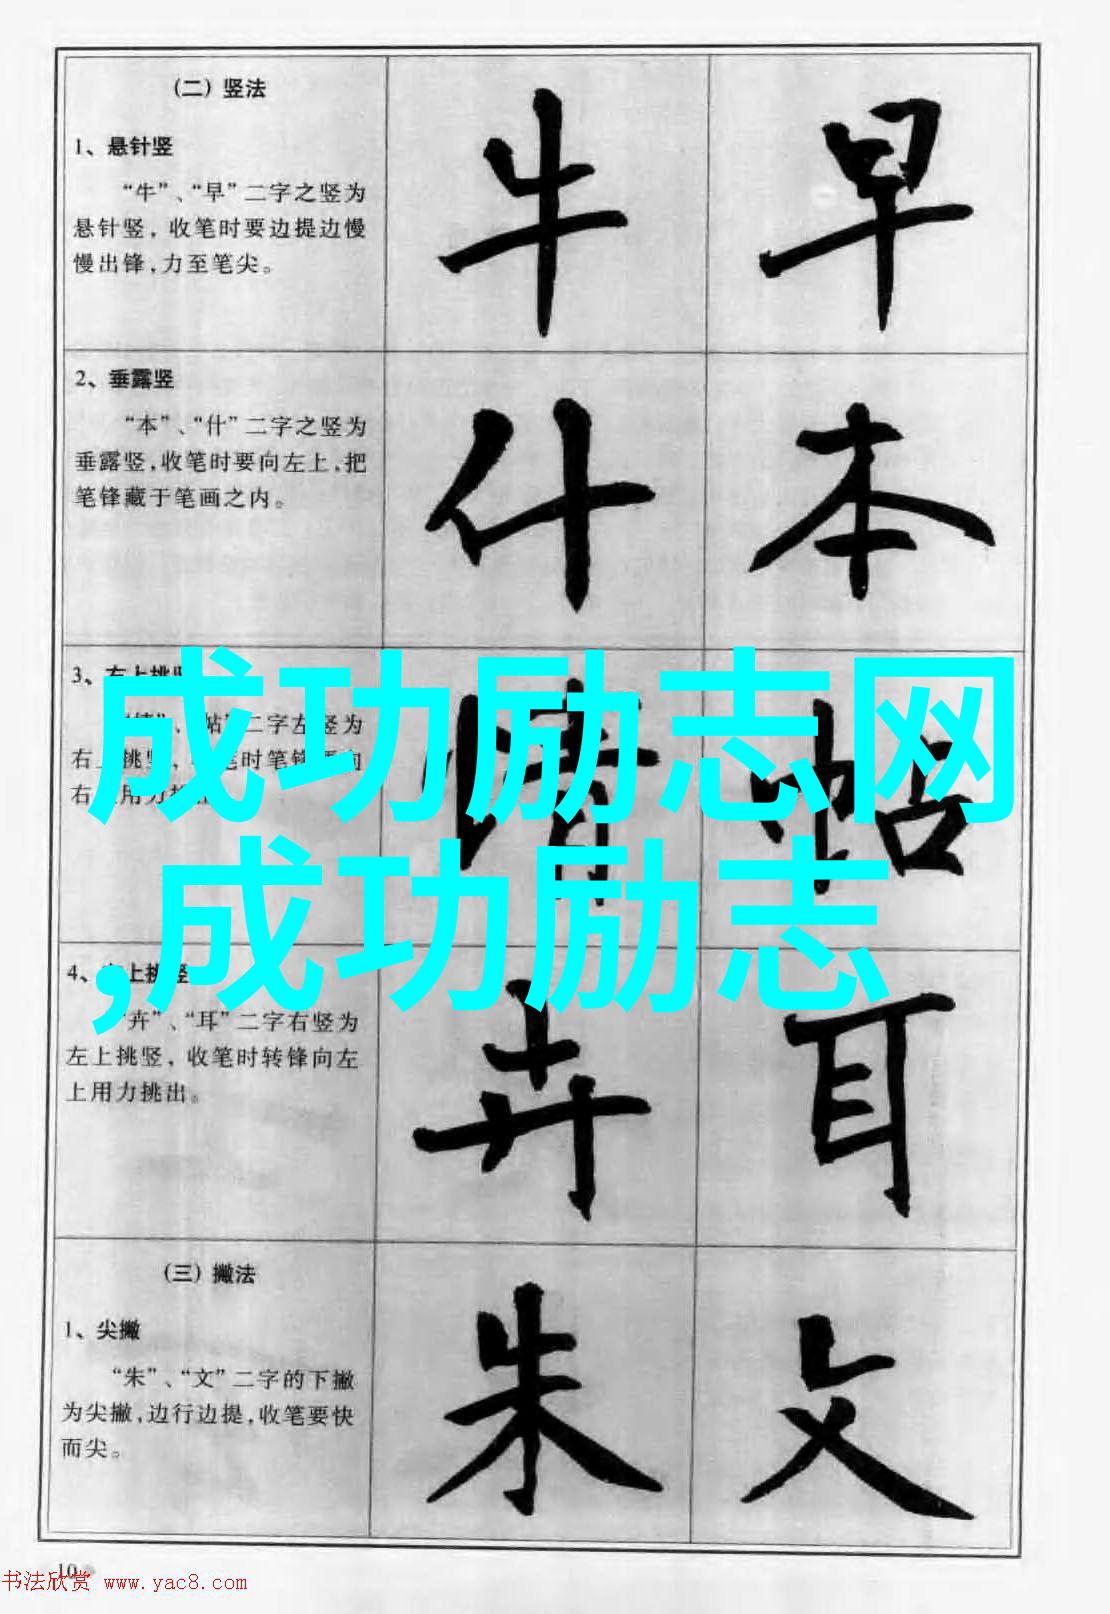 （二）竖法
1、悬针竖
“牛”、“早”二字之竖为
悬针竖，收笔时要边提边慢
慢出锋，力至笔尖。
牛 早
2、垂露竖
“本”、“什”二字之竖为
垂露竖，收笔时要向左上，把
笔锋藏于笔画之内。
什 本
3、右上挑竖
帖”二字左竖为
右上挑竖，收笔时笔锋要向
右上用力挑出
情 帖
成功励志网
,成功励志
4、左上挑竖
“卉”、“耳”二字右竖为
左上挑竖，收笔时转锋向左
上用力挑出。
卉 耳
（三）撇法
1、尖撇
“朱”、“文”二字的下撇
为尖撇，边行边提，收笔要快
而尖。
朱 文
10
书法欣赏 www.yac8.com